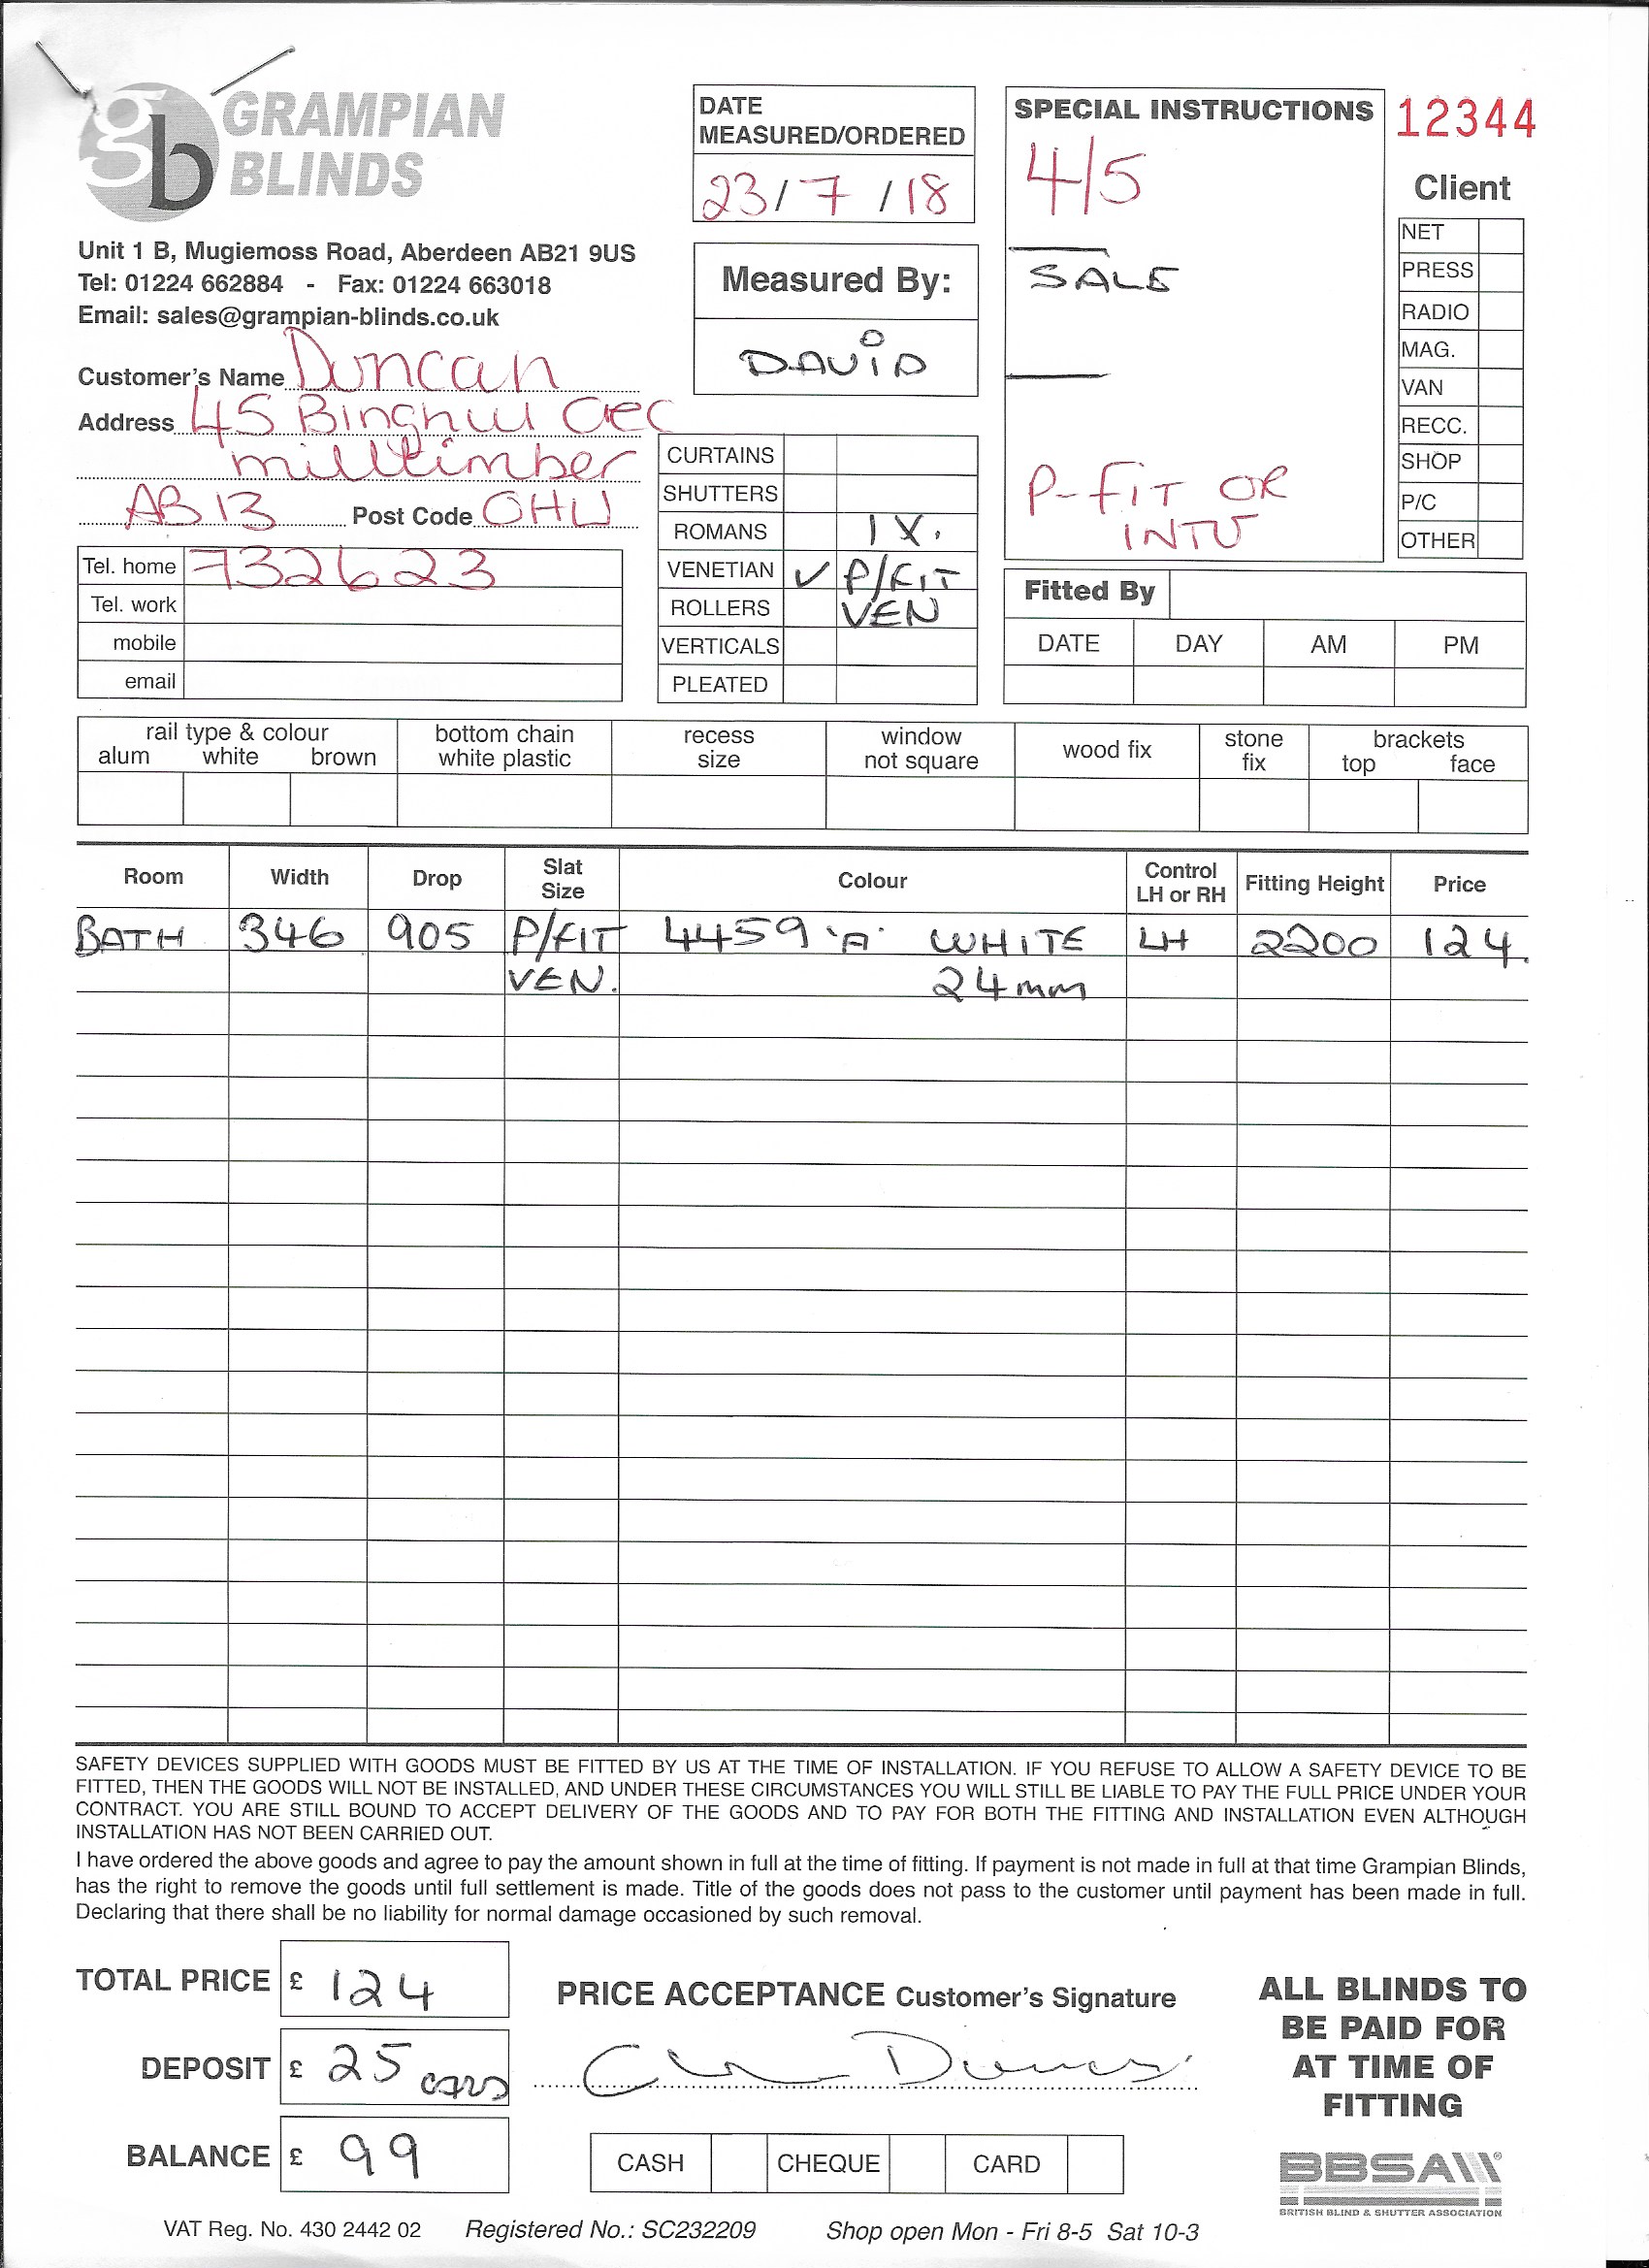 gb GRAMPIAN
BLINDS
Unit 1 B, Mugiemoss Road, Aberdeen AB21 9US
Tel: 01224 662884 - Fax: 01224 663018
Email: sales@grampian-blinds.co.uk
Customer's Name Duncan
Address 45 Binghill Cres
milltimber
AB13 Post Code OHW
Tel. home 732623
Tel. work
mobile
email
DATE
MEASURED/ORDERED
23/7/18
Measured By:
DAVID
CURTAINS
SHUTTERS
ROMANS 1X.
VENETIAN ✓ P/FIT
ROLLERS VEN
VERTICALS
PLEATED
SPECIAL INSTRUCTIONS
4/5
SALE
P-FIT OR
INTU
12344
Client
NET
PRESS
RADIO
MAG.
VAN
RECC.
SHOP
P/C
OTHER
Fitted By
DATE DAY AM PM
rail type & colour bottom chain recess window wood fix stone brackets
alum white brown white plastic size not square fix top face
Room Width Drop Slat Size Colour Control LH or RH Fitting Height Price
BATH 346 905 P/FIT 4459 'A' WHITE LH 2200 124.
VEN. 24mm
SAFETY DEVICES SUPPLIED WITH GOODS MUST BE FITTED BY US AT THE TIME OF INSTALLATION. IF YOU REFUSE TO ALLOW A SAFETY DEVICE TO BE
FITTED, THEN THE GOODS WILL NOT BE INSTALLED, AND UNDER THESE CIRCUMSTANCES YOU WILL STILL BE LIABLE TO PAY THE FULL PRICE UNDER YOUR
CONTRACT. YOU ARE STILL BOUND TO ACCEPT DELIVERY OF THE GOODS AND TO PAY FOR BOTH THE FITTING AND INSTALLATION EVEN ALTHOUGH
INSTALLATION HAS NOT BEEN CARRIED OUT.
I have ordered the above goods and agree to pay the amount shown in full at the time of fitting. If payment is not made in full at that time Grampian Blinds,
has the right to remove the goods until full settlement is made. Title of the goods does not pass to the customer until payment has been made in full.
Declaring that there shall be no liability for normal damage occasioned by such removal.
TOTAL PRICE £ 124
DEPOSIT £ 25 CARD
BALANCE £ 99
PRICE ACCEPTANCE Customer's Signature
CASH CHEQUE CARD
ALL BLINDS TO
BE PAID FOR
AT TIME OF
FITTING
BBSA
BRITISH BLIND & SHUTTER ASSOCIATION
VAT Reg. No. 430 2442 02 Registered No.: SC232209 Shop open Mon - Fri 8-5 Sat 10-3